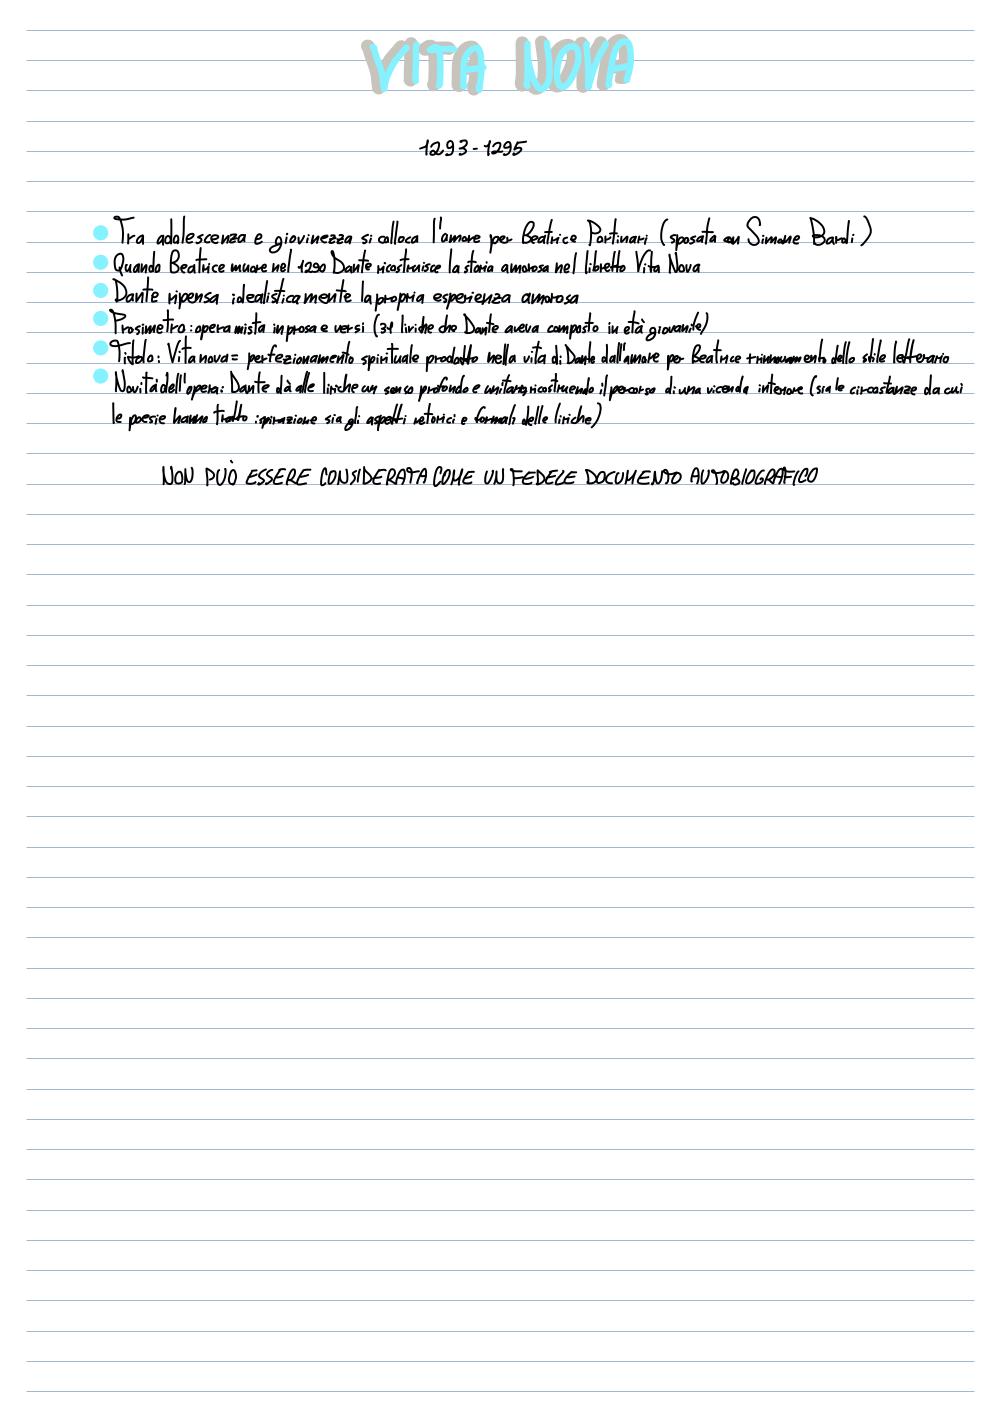 VITA NOVA
1293-1295
Tra adolescenza e giovinezza si colloca l'amore per Beatrice Portinari (sposata con Simone Bardi)
Quando Beatrice muore nel 1290 Dante ricostruisce la storia amorosa nel libretto Vita Nova
Dante ripensa idealisticamente la propria esperienza amorosa
Prosimetro: opera mista in prosa e versi (31 liriche che Dante aveva composto in età giovanile)
Titolo: Vita nova = perfezionamento spirituale prodotto nella vita di Dante dall'amore per Beatrice + rinnovamento dello stile letterario
Novità dell'opera: Dante dà alle liriche un senso profondo e unitario, ricostruendo il percorso di una vicenda interiore (sia le circostanze da cui
le poesie hanno tratto ispirazione sia gli aspetti retorici e formali delle liriche)
NON PUÒ ESSERE CONSIDERATA COME UN FEDELE DOCUMENTO AUTOBIOGRAFICO